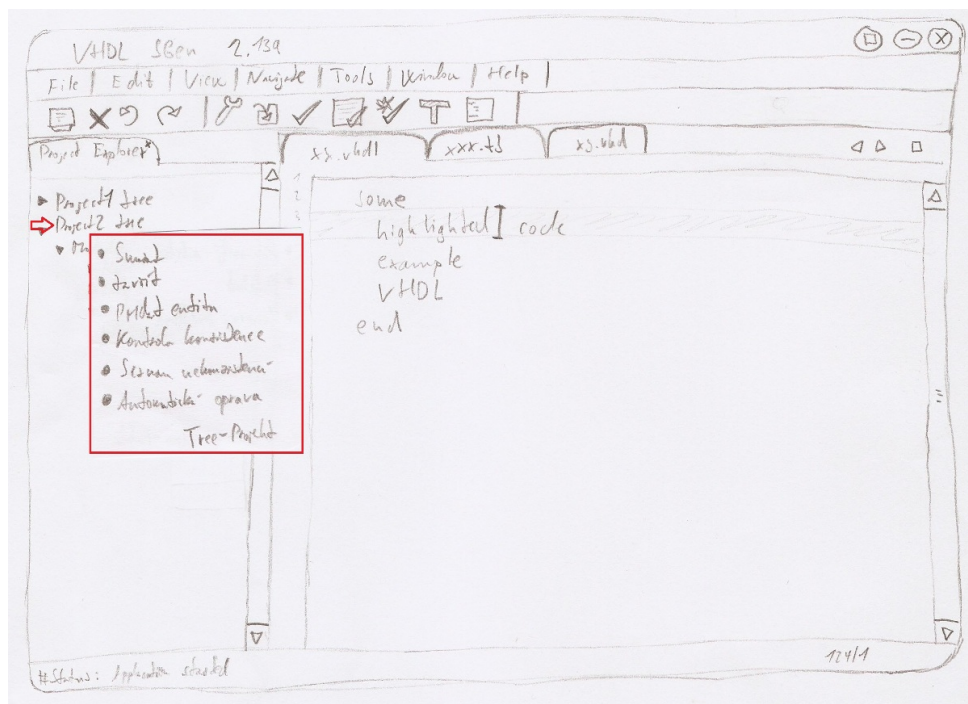 VHDL SGen 2.139
File | Edit | View | Navigate | Tools | Window | Help |
Project Explorer x
xy.vhdl
xxx.tb
xy.vhd
1
2
3
Project1 tree
Project2 tree
Smazat
Zavřít
Přidat entitu
Kontrola konzistence
Seznam nekonzistencí
Automatická oprava
Tree-Projekt
some
highlighted code
example
VHDL
end
#Status: Application started
124/1